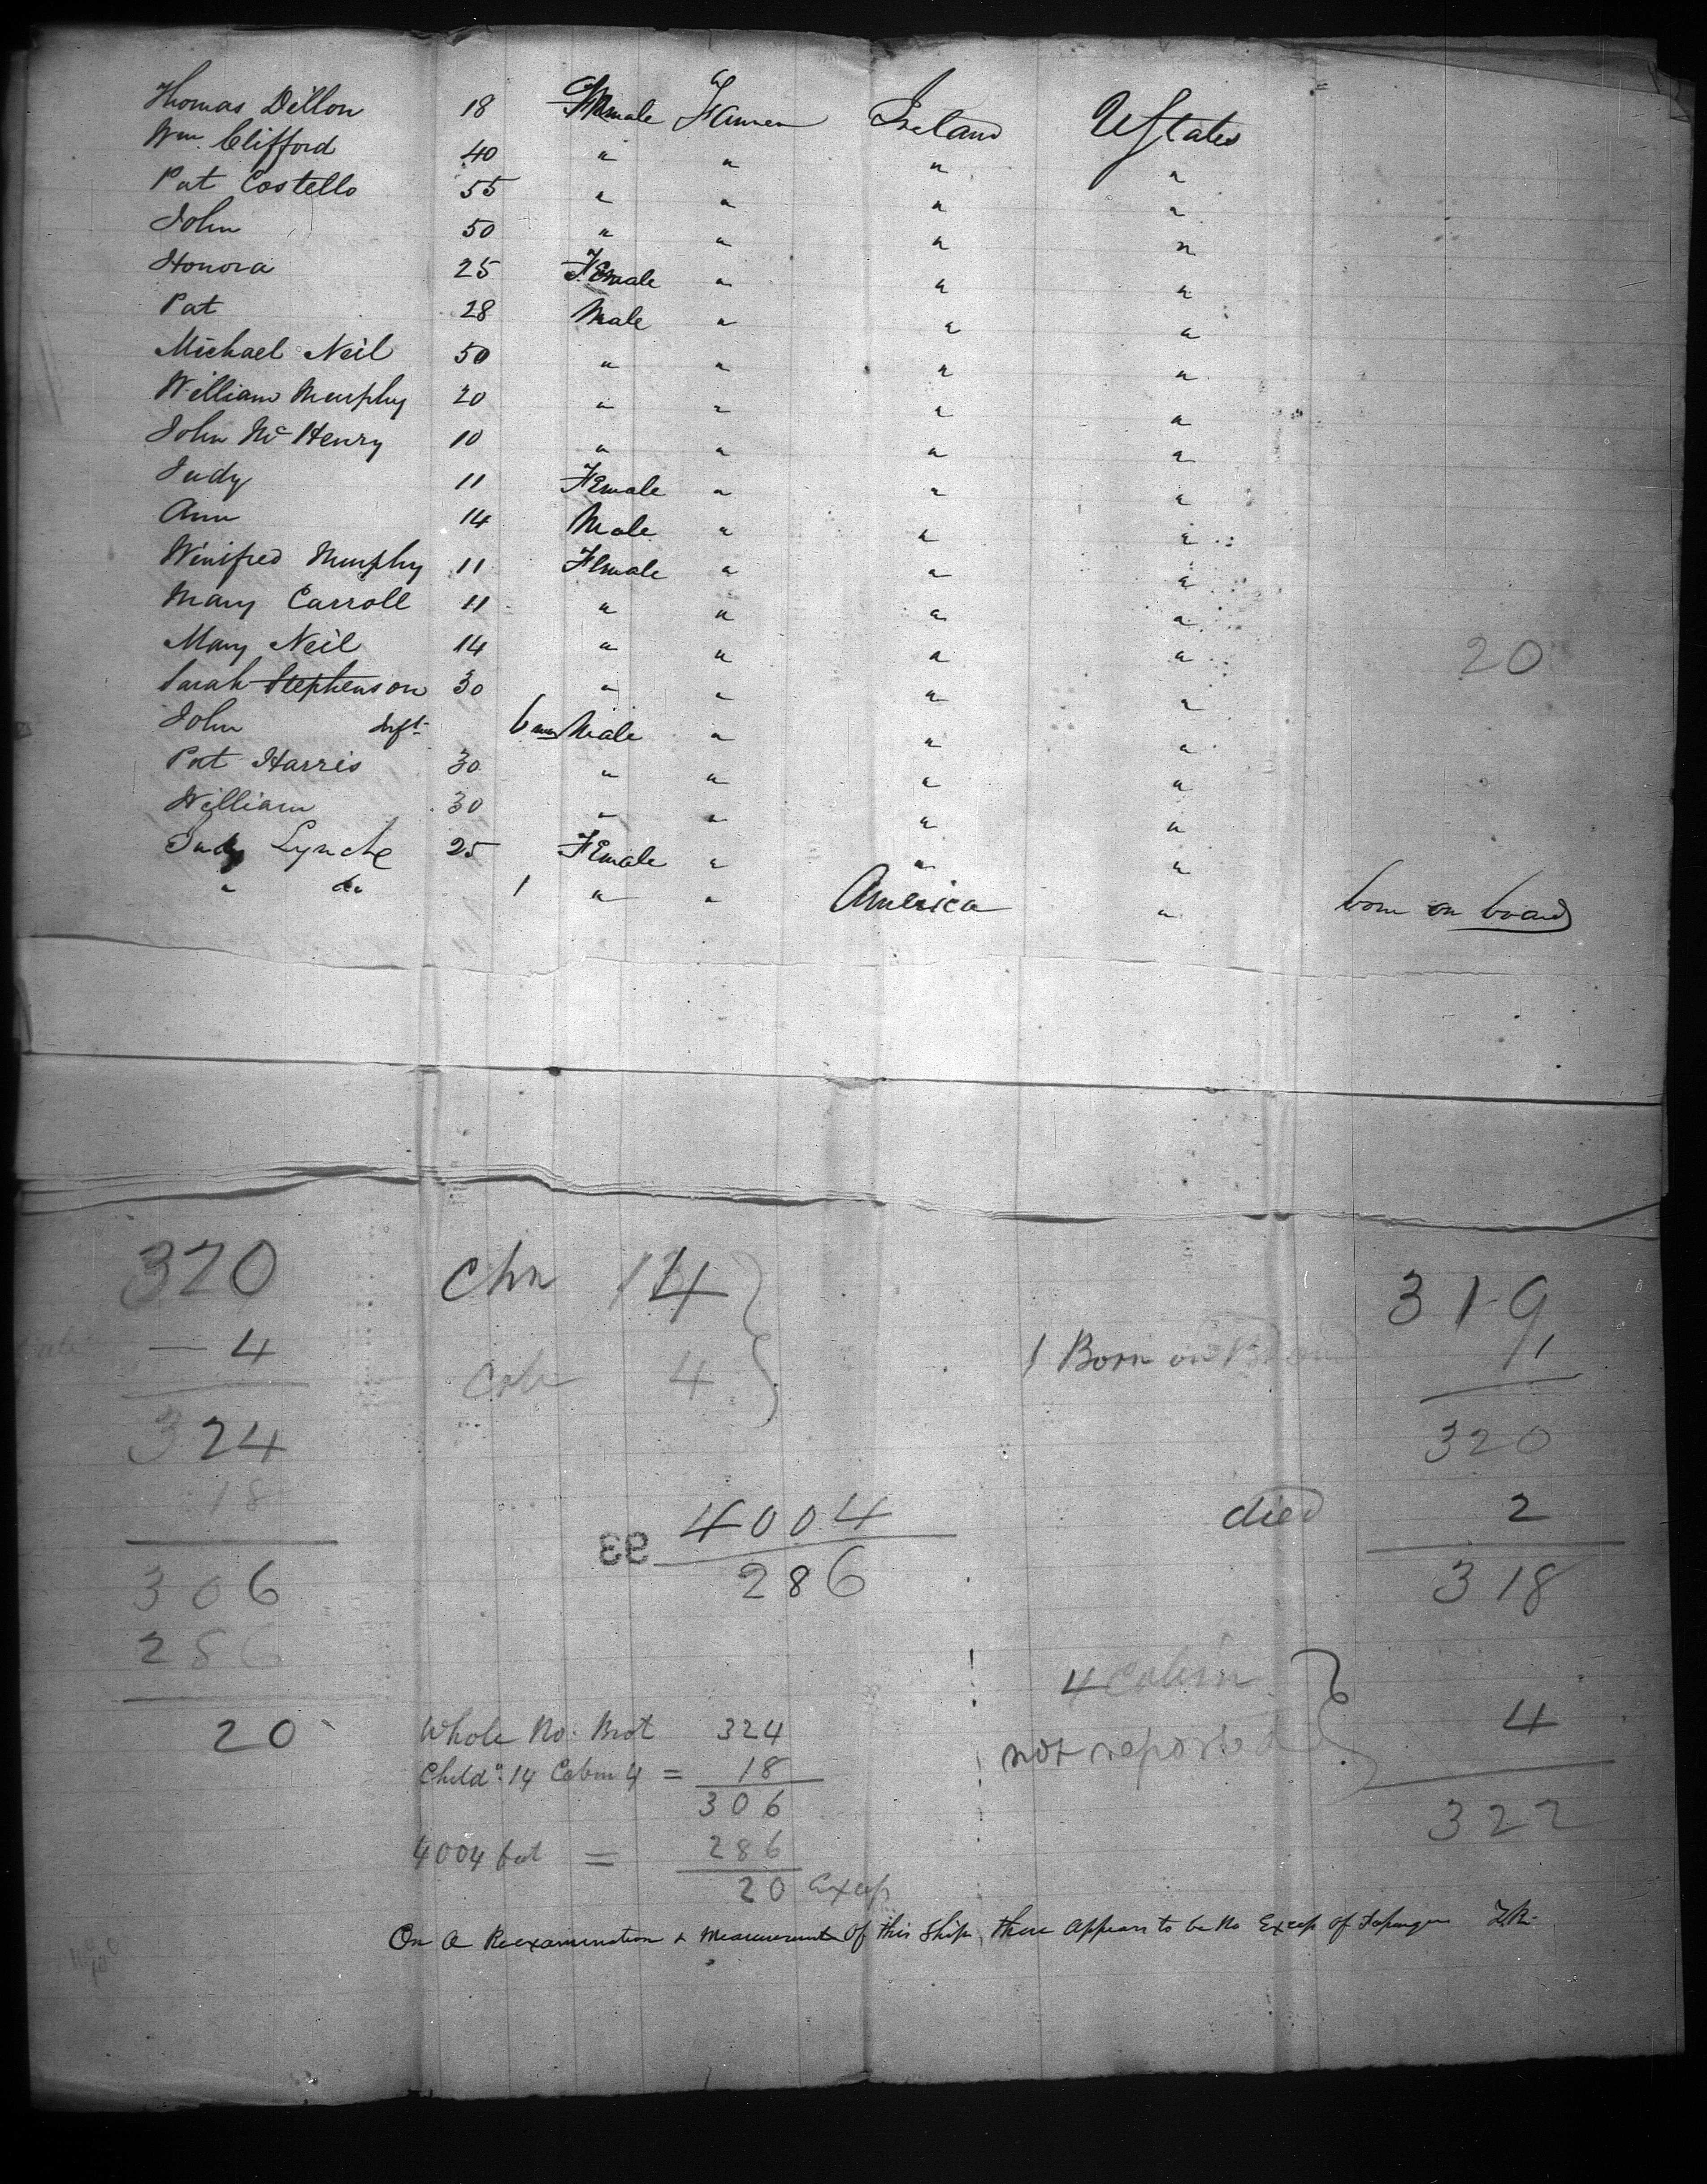 Thomas Dillon 18 Male Farmer Ireland UStates
Wm. Clifford 40 " " " "
Pat Costello 55 " " " "
John 50 " " " "
Honora 25 Female " " "
Pat 28 Male " " "
Michael Neil 50 " " " "
William Murphy 20 " " " "
John McHenry 10 " " " "
Judy 11 Female " " "
Ann 14 Male " " "
Winifred Murphy 11 Female " " "
Mary Carroll 11 " " " "
Mary Neil 14 " " " "
20
Sarah Stephenson 30 " " " "
John Inft. 6 mos Male " " "
Pat Harris 30 " " " "
William 30 " " " "
Judy Lynch 25 Female " " "
" do 1 " " America " born on board
320 Chn 14 319
4 Cab 4 1 Born on Board 1
324 320
18 4004 died 2
93
306 286 318
286 4 Cabin
20 Whole No. Brot 324 not reported 4
Childn. 14 Cabin 4 = 18
306 322
4004 feet = 286
20 Excess
On a Reexamination & Measurement of this Ship, there appears to be no Excess of Passengers